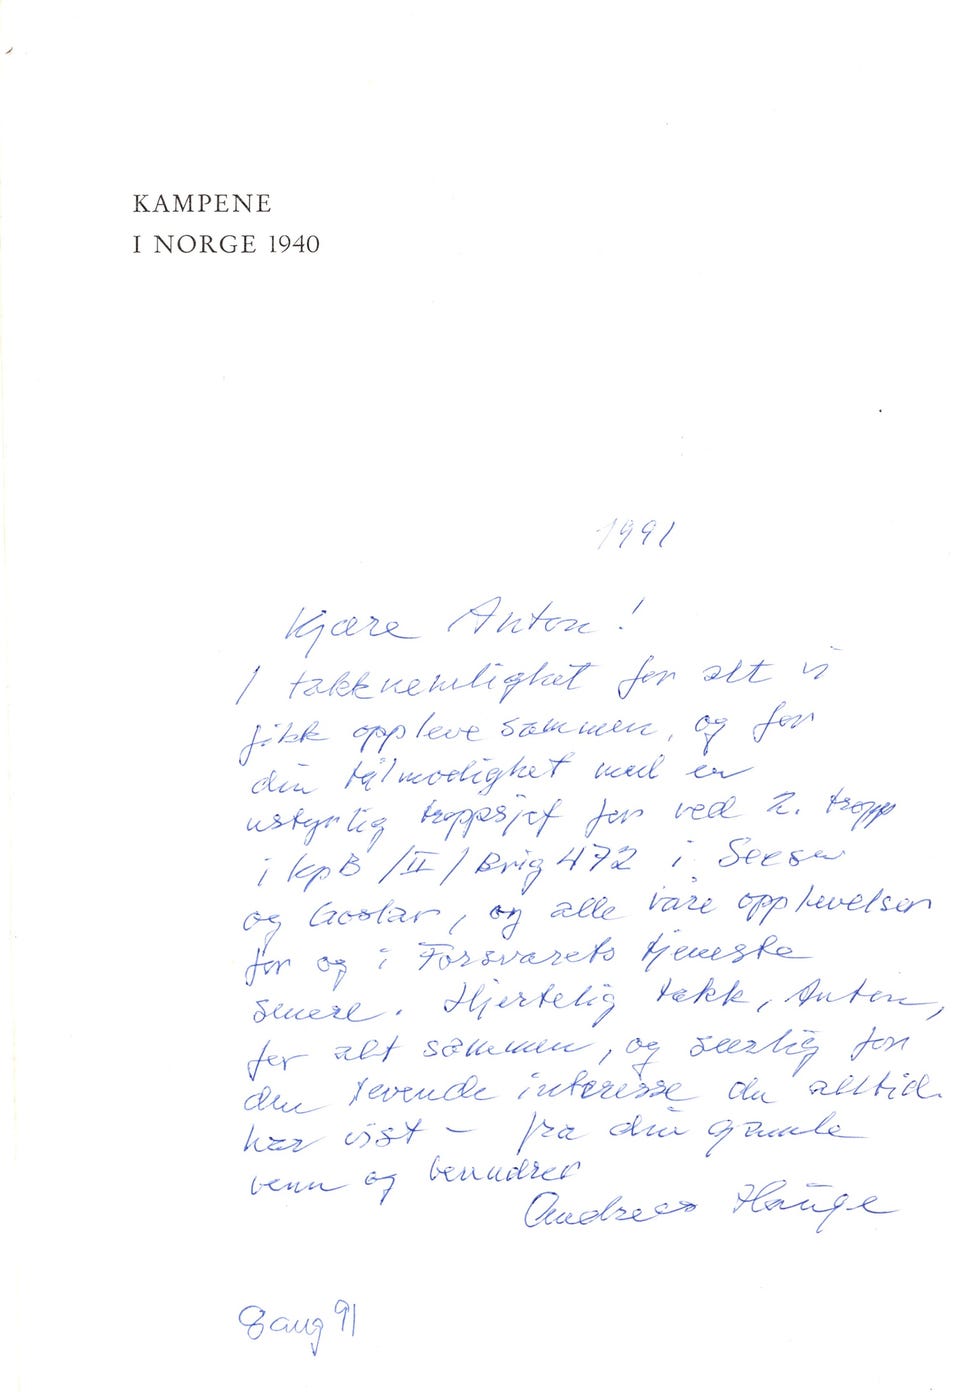 KAMPENE
I NORGE 1940
1991
Kjære Anton!
I takknemlighet for alt vi
fikk oppleve sammen, og for
din tålmodighet med en
ustyrlig troppsjef før ved 2. tropp
i KpB/II/Brig 472 i Seesen
og Goslar, og alle våre opplevelser
før og i Forsvarets tjeneste
senere. Hjertelig takk, Anton,
for alt sammen, og særlig for
den levende interesse du alltid
har vist - fra din gamle
venn og beundrer
Andreas Hauge
8 aug 91